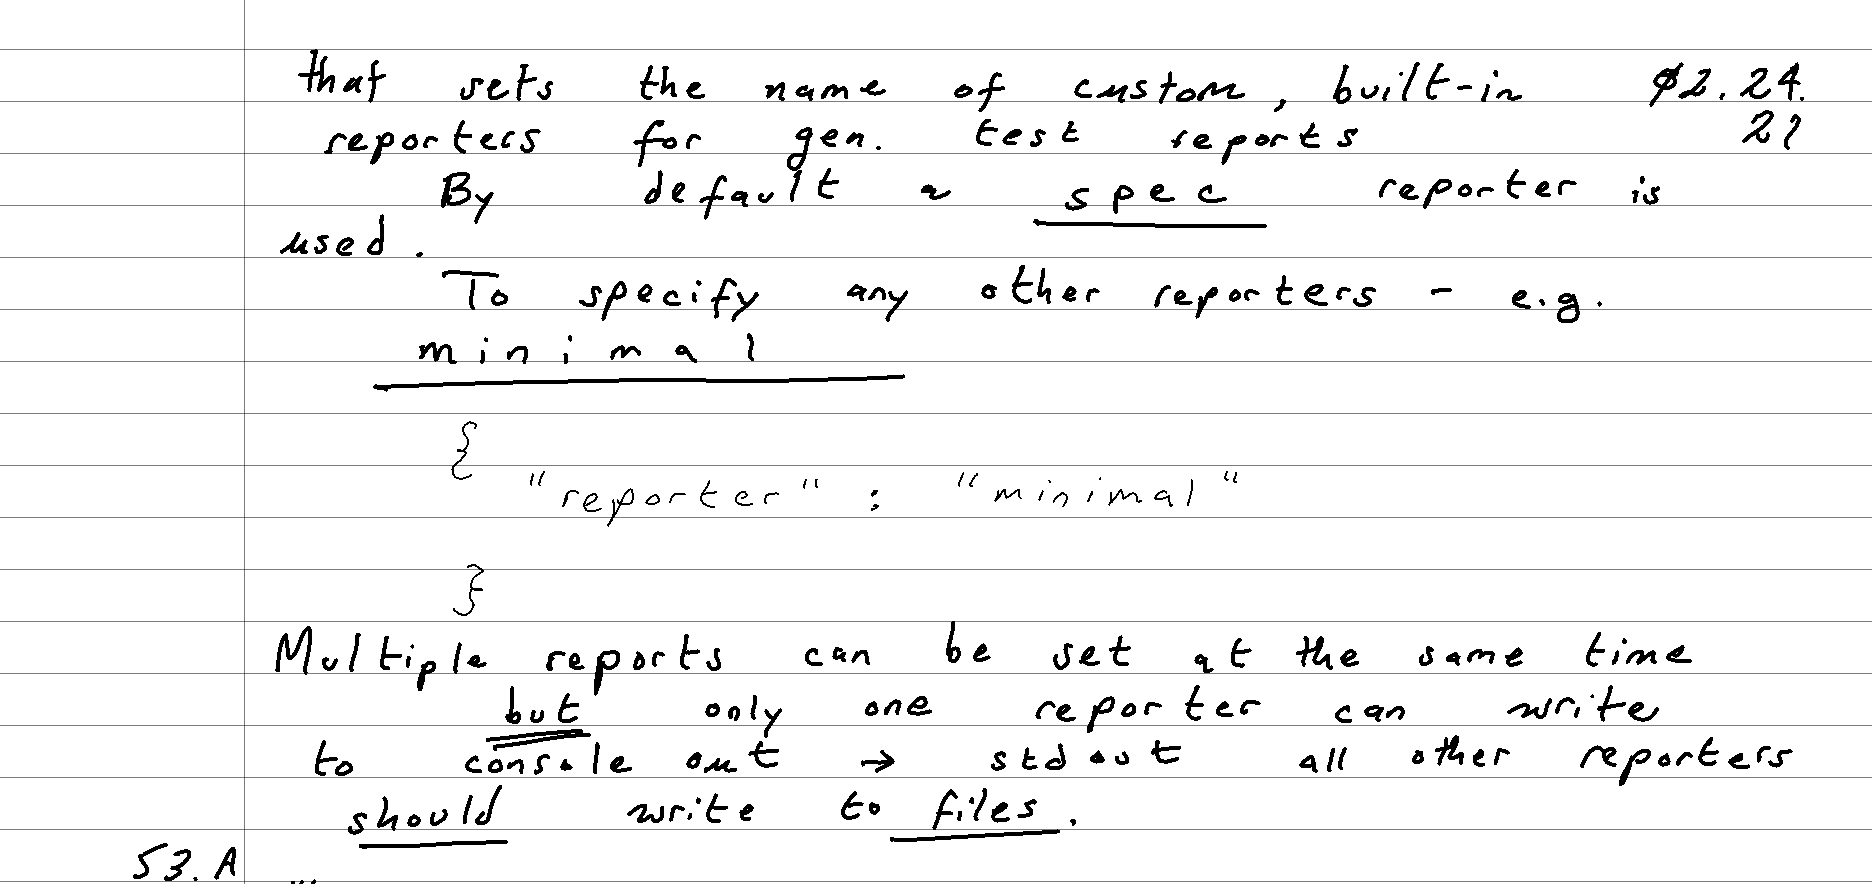 that sets the name of custom, built-in 02.24.
reporters for gen. test reports 21
By default a spec reporter is
used.
To specify any other reporters - e.g.
minimal
{
"reporter" : "minimal"
}
Multiple reports can be set at the same time
but only one reporter can write
to console out → stdout all other reporters
should write to files.
53.A